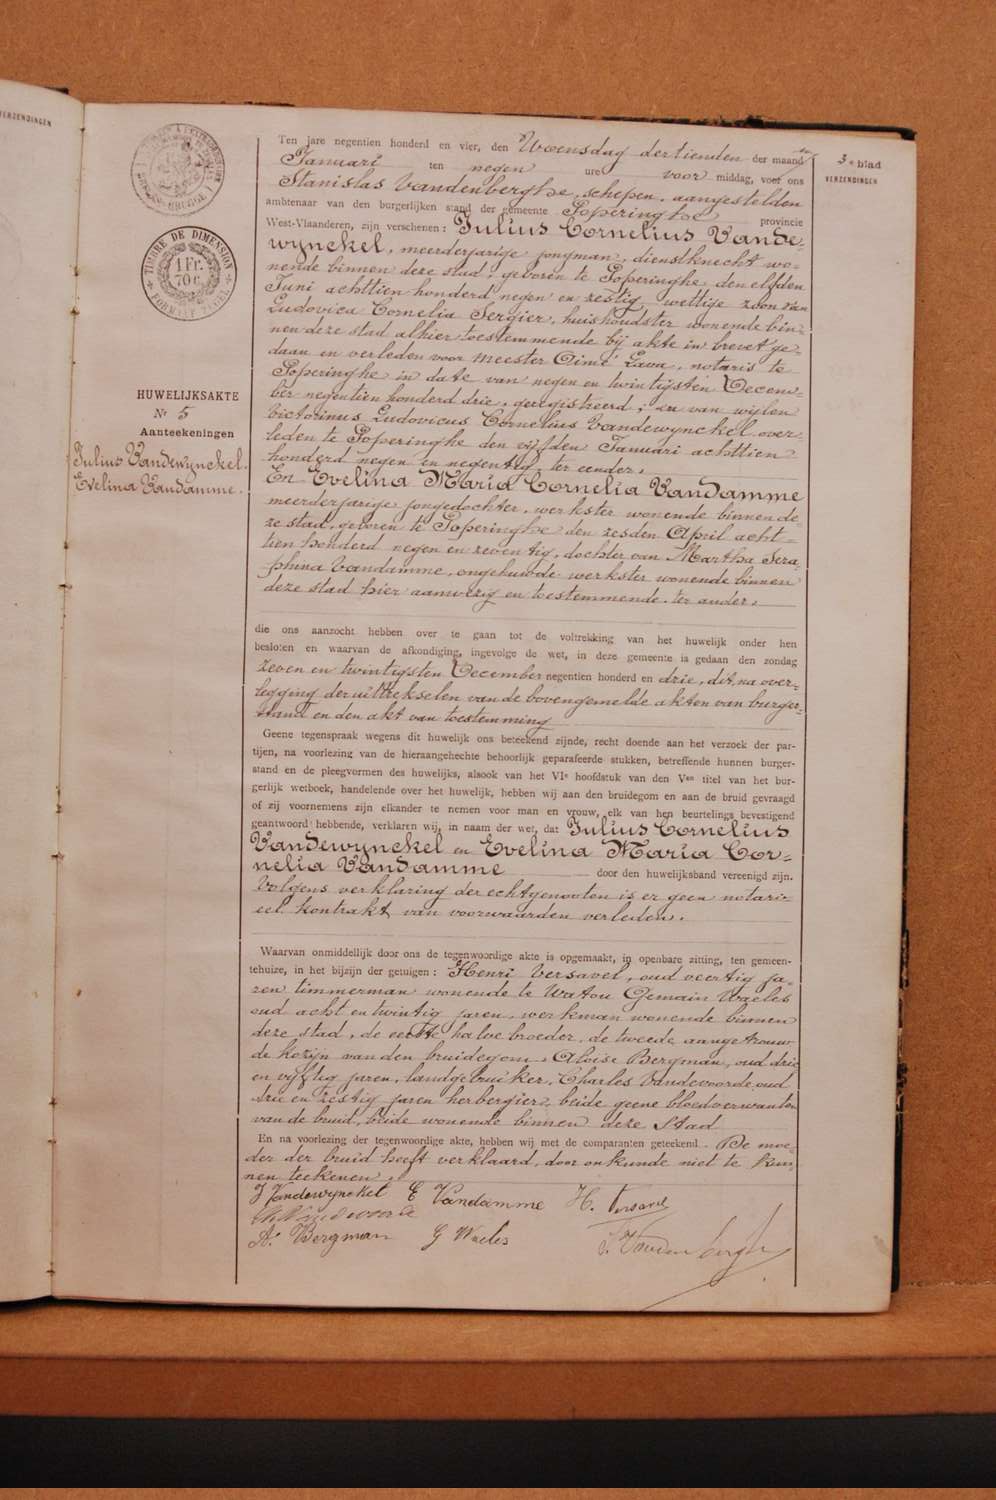 VERZENDINGEN
TIMBRE DE DIMENSION
1 Fr.
70 c.
FORMAAT ZEGEL
HUWELIJKSAKTE
Nr 5
Aanteekeningen
Julius Vandewynckel.
Evelina Vandamme.
3e blad
VERZENDINGEN
Ten jare negentien honderd en vier, den Woensdag dertienden der maand
Januari ten negen ure voor middag, voor ons
Stanislas Vandenberghe, schepen, aangestelden
ambtenaar van den burgerlijken stand der gemeente Poperinghe provincie
West-Vlaanderen, zijn verschenen: Julius Cornelius Vande-
wynckel, meerderjarige jongman, dienstknecht wo-
nende binnen deze stad, geboren te Poperinghe den elfden
Juni achttien honderd negen en zestig, wettige zoon van
Ludovica Cornelia Sergier, huishoudster wonende bin-
nen deze stad alhier toestemmende bij akte in brevet ge-
daan en verleden voor meester Aimé Lava, notaris te
Poperinghe in date van negen en twintigsten Decem-
ber negentien honderd drie, geregistreerd; en van wijlen
Victorinus Ludovicus Cornelius Vandewynckel over-
leden te Poperinghe den vijfden Januari achttien
honderd negen en negentig, ter eender,
En Evelina Maria Cornelia Vandamme
meerderjarige jongedochter, werkster wonende binnen de-
ze stad, geboren te Poperinghe den zesden April acht-
tien honderd negen en zeventig, dochter van Martha Sera-
phina Vandamme, ongehuwde werkster wonende binnen
deze stad hier aanwezig en toestemmende, ter ander,
die ons aanzocht hebben over te gaan tot de voltrekking van het huwelijk onder hen
besloten en waarvan de afkondiging, ingevolge de wet, in deze gemeente is gedaan den zondag
zeven en twintigsten December negentien honderd en drie, dit, na over-
legging der uittrekselen van de bovengemelde akten van burger-
stand en den akt van toestemming
Geene tegenspraak wegens dit huwelijk ons beteekend zijnde, recht doende aan het verzoek der par-
tijen, na voorlezing van de hieraangehechte behoorlijk geparafeerde stukken, betreffende hunnen burger-
stand en de pleegvormen des huwelijks, alsook van het VIe hoofdstuk van den Ven titel van het bur-
gerlijk wetboek, handelende over het huwelijk, hebben wij aan den bruidegom en aan de bruid gevraagd
of zij voornemens zijn elkander te nemen voor man en vrouw, elk van hen beurtelings bevestigend
geantwoord hebbende, verklaren wij, in naam der wet, dat Julius Cornelius
Vandewynckel en Evelina Maria Cor-
nelia Vandamme door den huwelijksband vereenigd zijn.
Volgens verklaring der echtgenooten is er geen notari-
eel kontrakt van voorwaarden verleden.
Waarvan onmiddellijk door ons de tegenwoordige akte is opgemaakt, in openbare zitting, ten gemeen-
tehuize, in het bijzijn der getuigen: Henri Versavel, oud veertig ja-
ren timmerman wonende te Watou Germain Waeles
oud acht en twintig jaren, werkman wonende binnen
deze stad, de eerste halve broeder, de tweede aangetrouw-
de kozijn van den bruidegom, Aloïse Bergman, oud drie
en vijftig jaren, landgebruiker, Charles Vandevoorde, oud
drie en zestig jaren herbergier, beide geene bloedverwanten
van de bruid, beide wonende binnen deze Stad
En na voorlezing der tegenwoordige akte, hebben wij met de comparanten geteekend. De moe-
der der bruid heeft verklaard, door onkunde niet te kun-
nen teekenen.
J Vandewynckel E Vandamme H. Versavel
Ch Vandevoorde
A. Bergman G Waeles S. Vandenberghe